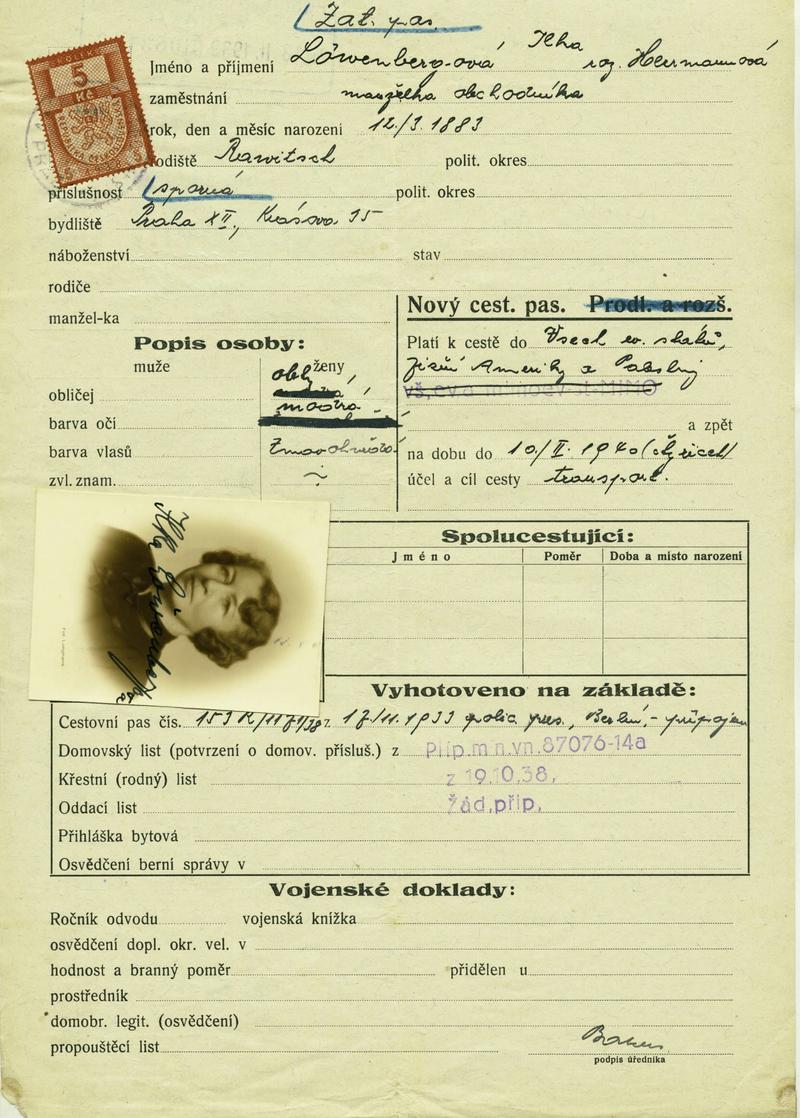 Zat. pas.
5
Kč
Jméno a příjmení Löwenberg-ová Ilka roz. Hermannová
zaměstnání manželka obchodníka
rok, den a měsíc narození 12/3. 1883
rodiště Rawitsch polit. okres
příslušnost sporná polit. okres
bydliště Praha XII, Krásova 15
náboženství stav
rodiče
manžel-ka
Nový cest. pas. Prodl. a rozš.
Popis osoby:
muže ženy
obličej obl.
barva očí modrá
barva vlasů
zvl. znam.
Platí k cestě do Všech ev. států,
Ameriky a
a zpět
na dobu do 10/II. 1940
účel a cíl cesty transport.
Ilka Löwenberg-ová
Spolucestující:
Jméno Poměr Doba a místo narození
Vyhotoveno na základě:
Cestovní pas čís. z 17/11. 1933 polic. pres., Berlín,
Domovský list (potvrzení o domov. přísluš.) z Příp.m n.vn.87076-14a
Křestní (rodný) list z 19.10.38,
Oddací list Žád.příp.
Přihláška bytová
Osvědčení berní správy v
Vojenské doklady:
Ročník odvodu vojenská knížka
osvědčení dopl. okr. vel. v
hodnost a branný poměr přidělen u
prostředník
domobr. legit. (osvědčení)
propouštěcí list
podpis úředníka